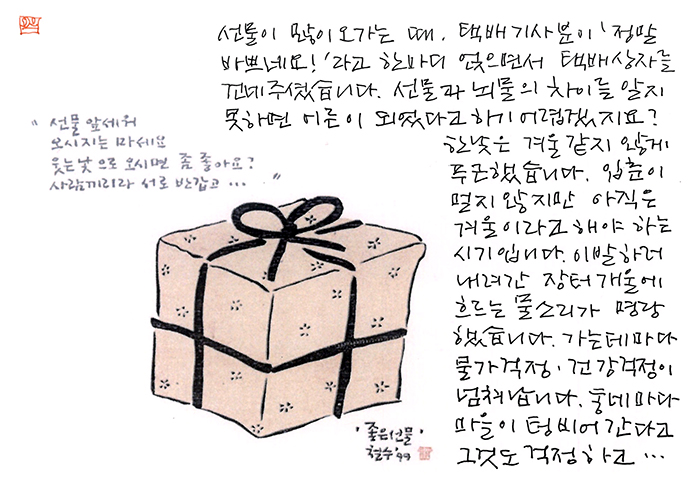 선물이 많이 오가는 때. 택배기사분이 '정말
바쁘네요!'라고 한마디 얹으면서 택배상자를
건네주셨습니다. 선물과 뇌물의 차이를 알지
못하면 어른이 되었다고 하기 어렵겠지요?
한낮은 겨울 같지 않게
푸근했습니다. 입춘이
멀지 않지만 아직은
겨울이라고 해야 하는
시기입니다. 이발하러
내려간 장터개울에
흐르는 물소리가 명랑
했습니다. 가는데마다
물가걱정·건강걱정이
넘쳐납니다. 동네마다
마을이 텅비어간다고
그것도 걱정하고 …
"선물 앞세워
오시지는 마세요
웃는낯으로 오시면 좀 좋아요?
사람끼리라 서로 반갑고 … "
'좋은선물'
철수 '99